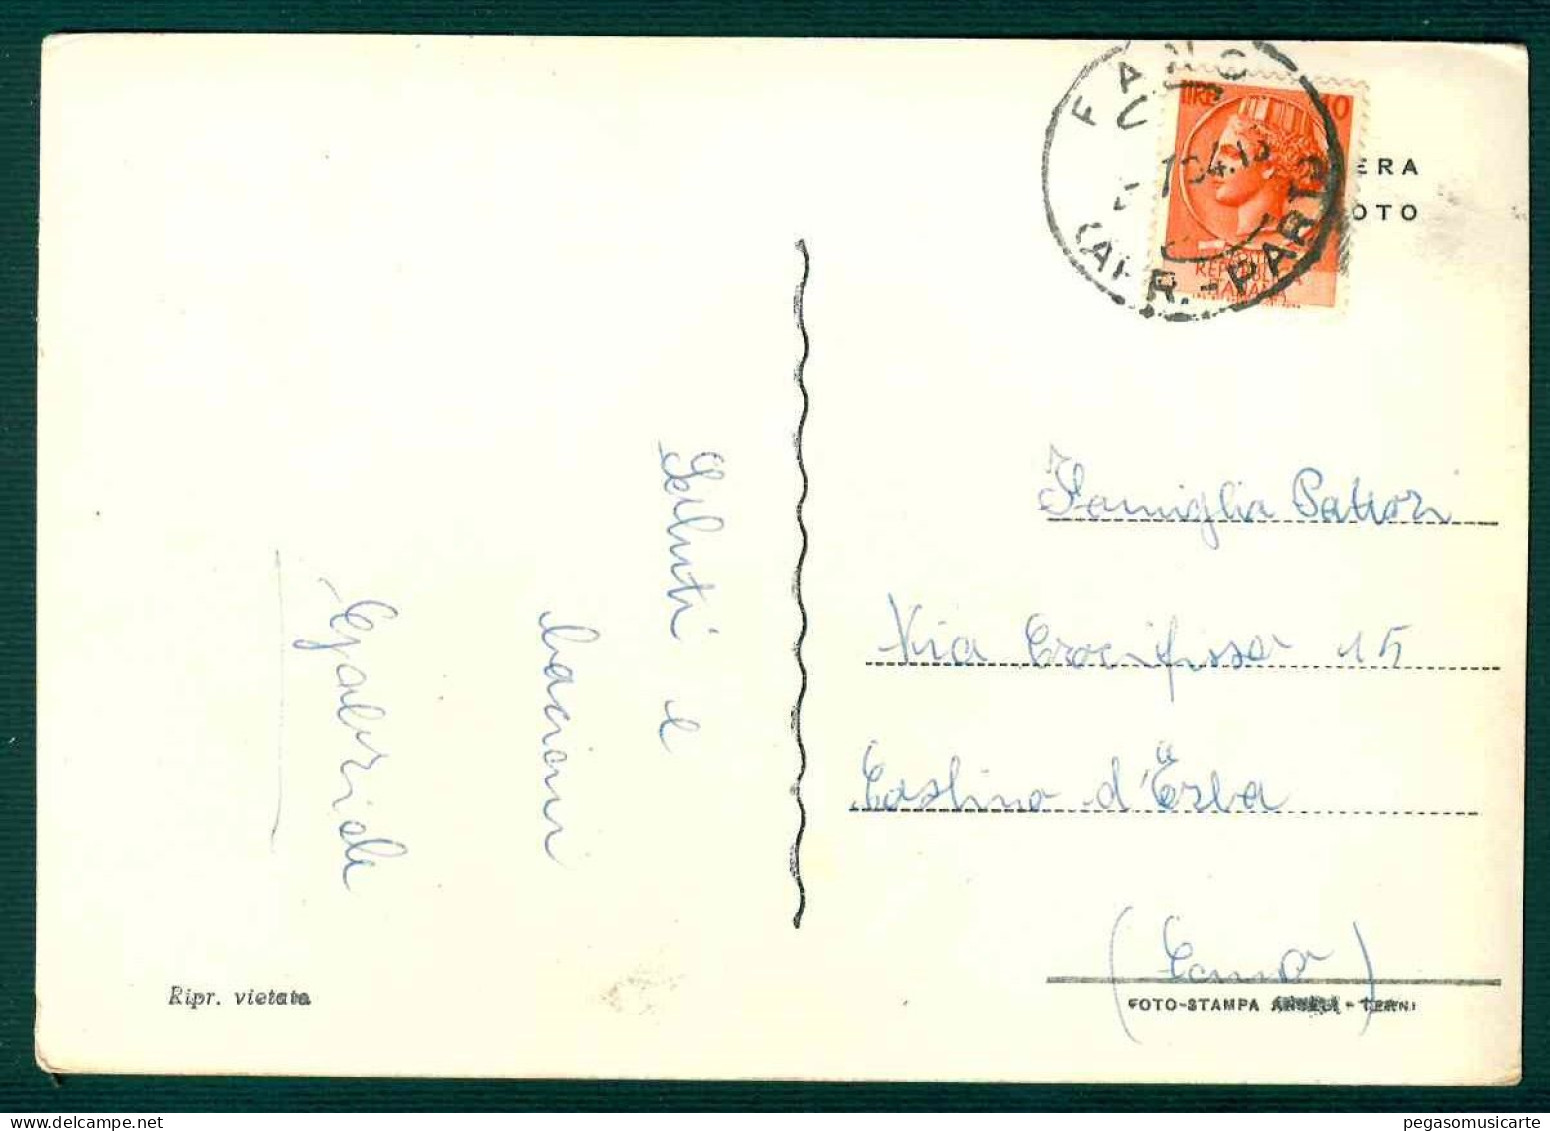 FANO
(ARR.-PART)
LIRE 10
REPUBBLICA
ITALIANA
ERA
OTO
Saluti e
bacioni
Gabriele
Famiglia Pattori
Via Crocifisso 15
Caslino d'Erba
(Como)
Ripr. vietata
FOTO-STAMPA ANGELI - TERNI
pegasomusicarte